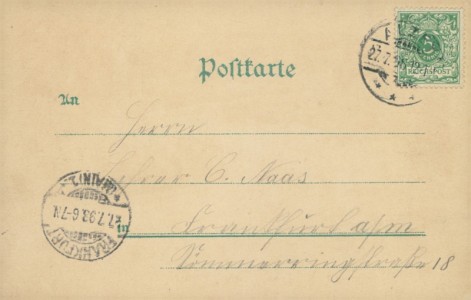 Postkarte
An
Herrn
Lehrer C. Naas
in Frankfurt a/M
Sömmerringstraße 18
REICHSPOST
FRANKFURT
(MAIN) 1
27.7.98.6-7N